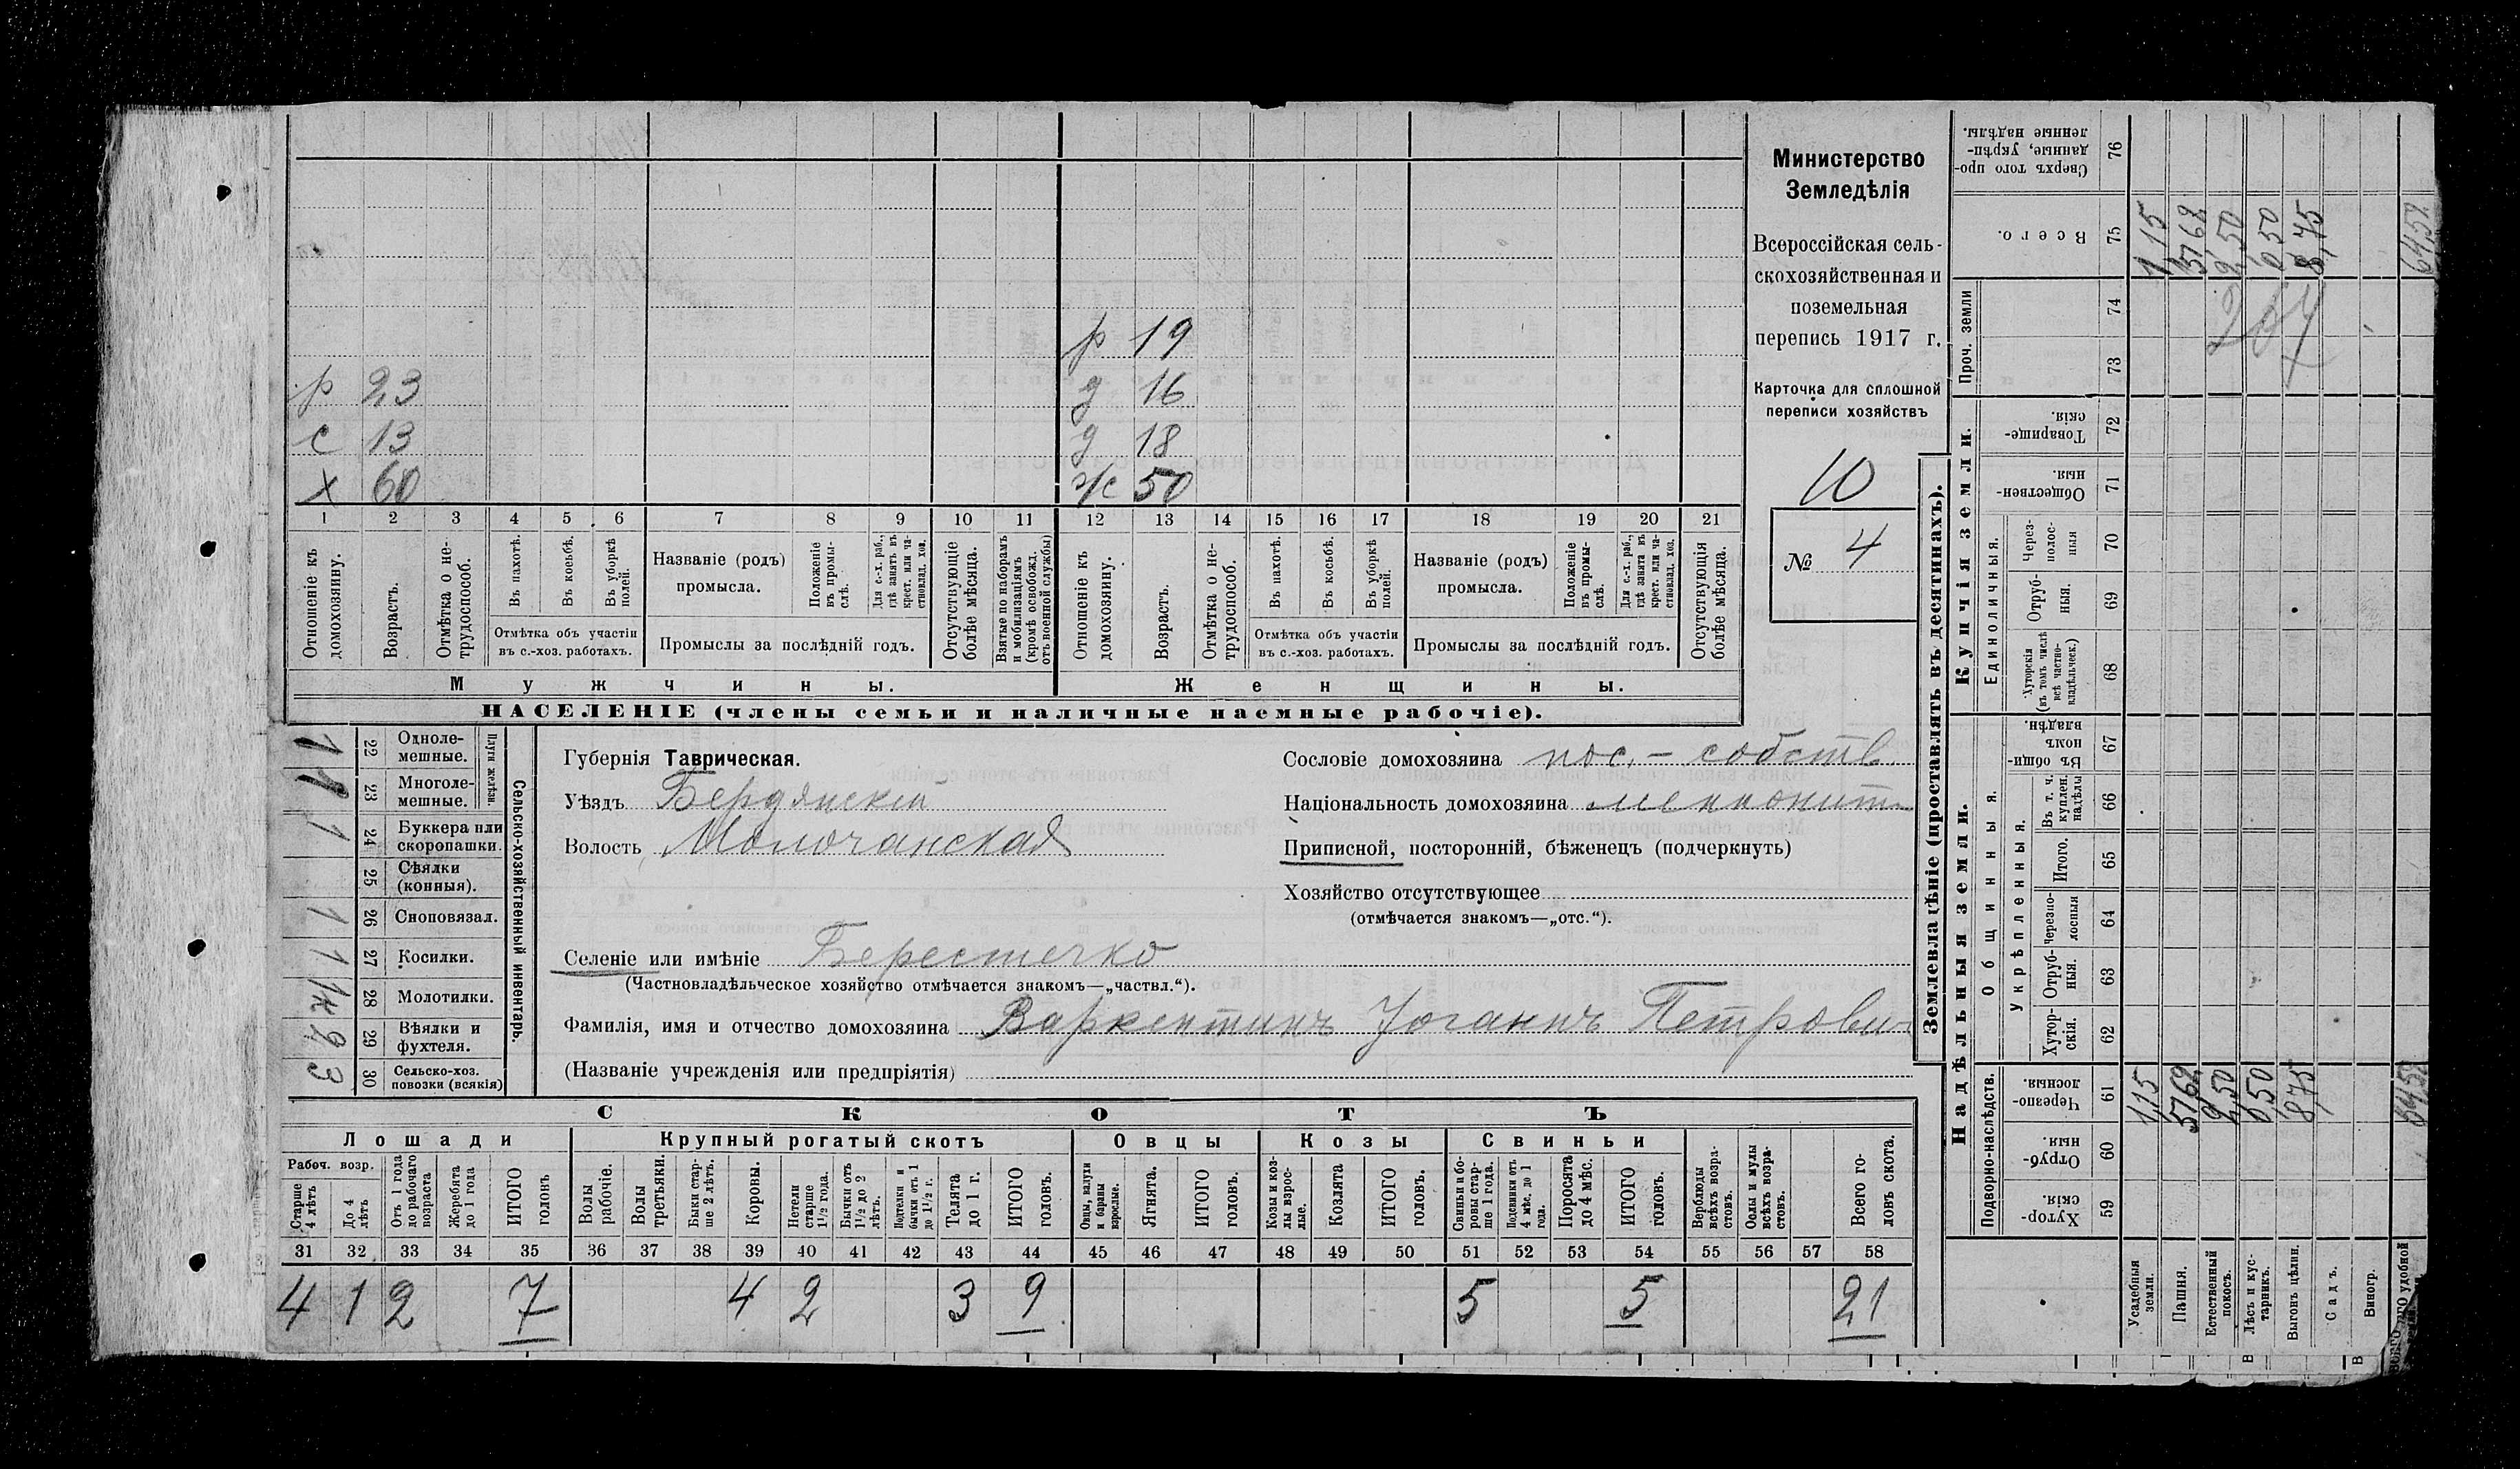 р 19
р 23 д 16
с 13 д 18
х 60 ж 50
1 2 3 4 5 6 7 8 9 10 11 12 13 14 15 16 17 18 19 20 21
Отношеніе къ домохозяину.
Возрастъ.
Отмѣтка о не-
трудоспособ.
Въ пахотѣ.
Въ косьбѣ.
Въ уборкѣ
полей.
Отмѣтка объ участіи
въ с.-хоз. работахъ.
Названіе (родъ)
промысла.
Положеніе
въ промы-
слѣ.
Для с.-х. раб.,
гдѣ занятъ въ
крест. или ча-
стновлад. хоз.
Промыслы за послѣдній годъ.
Отсутствующіе
болѣе мѣсяца.
Взятые по наборамъ
и мобилизаціямъ
(кромѣ освобожд.
отъ военной службы)
Отношеніе къ
домохозяину.
Возрастъ.
Отмѣтка о не-
трудоспособ.
Въ пахотѣ.
Въ косьбѣ.
Въ уборкѣ
полей.
Отмѣтка объ участіи
въ с.-хоз. работахъ.
Названіе (родъ)
промысла.
Положеніе
въ промы-
слѣ.
Для с.-х. раб.,
гдѣ занята въ
крест. или ча-
стновлад. хоз.
Промыслы за послѣдній годъ.
Отсутствующія
болѣе мѣсяца.
Мужчины. Женщины.
НАСЕЛЕНІЕ (члены семьи и наличные наемные рабочіе).
Министерство
Земледѣлія
Всероссійская сель-
скохозяйственная и
поземельная
перепись 1917 г.
Карточка для сплошной
переписи хозяйствъ
10
№ 4
Сельско-хозяйственный инвентарь.
Плуги желѣзн.
1 22 Одноле-
мешные.
1 23 Многоле-
мешные.
1 24 Буккера или
скоропашки.
25 Сѣялки
(конныя).
1 26 Сноповязал.
1 27 Косилки.
1к 28 Молотилки.
2 29 Вѣялки и
фухтеля.
3 30 Сельско-хоз.
повозки (всякія)
Губернія Таврическая.
Уѣздъ Бердянскій
Волость Молочанская
Сословіе домохозяина пос.-собств.
Національность домохозяина меннонит
Приписной, посторонній, бѣженецъ (подчеркнуть)
Хозяйство отсутствующее
(отмѣчается знакомъ—„отс.“).
Селеніе или имѣніе Берестечко
(Частновладѣльческое хозяйство отмѣчается знакомъ—„частвл.“).
Фамилія, имя и отчество домохозяина Варкентинъ Іоганнъ Петрович
(Названіе учрежденія или предпріятія)
СКОТЪ
Лошади Крупный рогатый скотъ Овцы Козы Свиньи
Рабоч. возр.
Старше
4 лѣтъ
До 4
лѣтъ
Отъ 1 года
до рабочаго
возраста
Жеребята
до 1 года
ИТОГО
головъ
Волы
рабочіе.
Волы
третьяки.
Быки стар-
ше 2 лѣтъ.
Коровы.
Нетели
старше
1½ года.
Бычки отъ
1½ до 2
лѣтъ.
Подтелки и
бычки отъ 1
до 1½ г.
Телята
до 1 г.
ИТОГО
головъ.
Овцы, валухи
и бараны
взрослые.
Ягнята.
ИТОГО
головъ.
Козы и коз-
лы взрос-
лые.
Козлята
ИТОГО
головъ.
Свиньи и бо-
ровы стар-
ше 1 года.
Подсвинки отъ
4 мѣс. до 1
года.
Поросята
до 4 мѣс.
ИТОГО
головъ.
Верблюды
всѣхъ возра-
стовъ.
Ослы и мулы
всѣхъ возра-
стовъ.
Всего го-
ловъ скота.
31 32 33 34 35 36 37 38 39 40 41 42 43 44 45 46 47 48 49 50 51 52 53 54 55 56 57 58
4 1 2 7 4 2 3 9 5 5 21
Землевладѣніе (проставлять въ десятинахъ).
Надѣльныя земли. Купчія земли. Проч. земли
Подворно-наслѣдств.
Общинныя.
Укрѣпленныя.
Единоличныя.
Хутор-
скія. 59
Отруб-
ныя. 60
Черезпо-
лосныя. 61
Хутор-
скія. 62
Отруб-
ныя. 63
Черезпо-
лосныя 64
Итого. 65
Въ т. ч.
куплен.
надѣлы 66
Въ общин-
номъ
владѣн. 67
Хуторскія
(въ томъ числѣ
всѣ частно-
владѣльческ.) 68
Отруб-
ныя. 69
Через-
полос-
ныя 70
Обществен-
ныя 71
Товарище-
скія. 72
73
74
Всего. 75
Сверхъ того про-
данные, укрѣп-
ленные надѣлы. 76
Усадебныя
земли. 1,15 1,15
Пашня. 51 62 51 62
Естественный
покосъ. 2,50 2,50
Лѣсъ и кус-
тарникъ. 0,50 0,50
Выгонъ цѣлин. 8,75 8,75
Садъ.
Виногр.
удобной 64,52 64,52